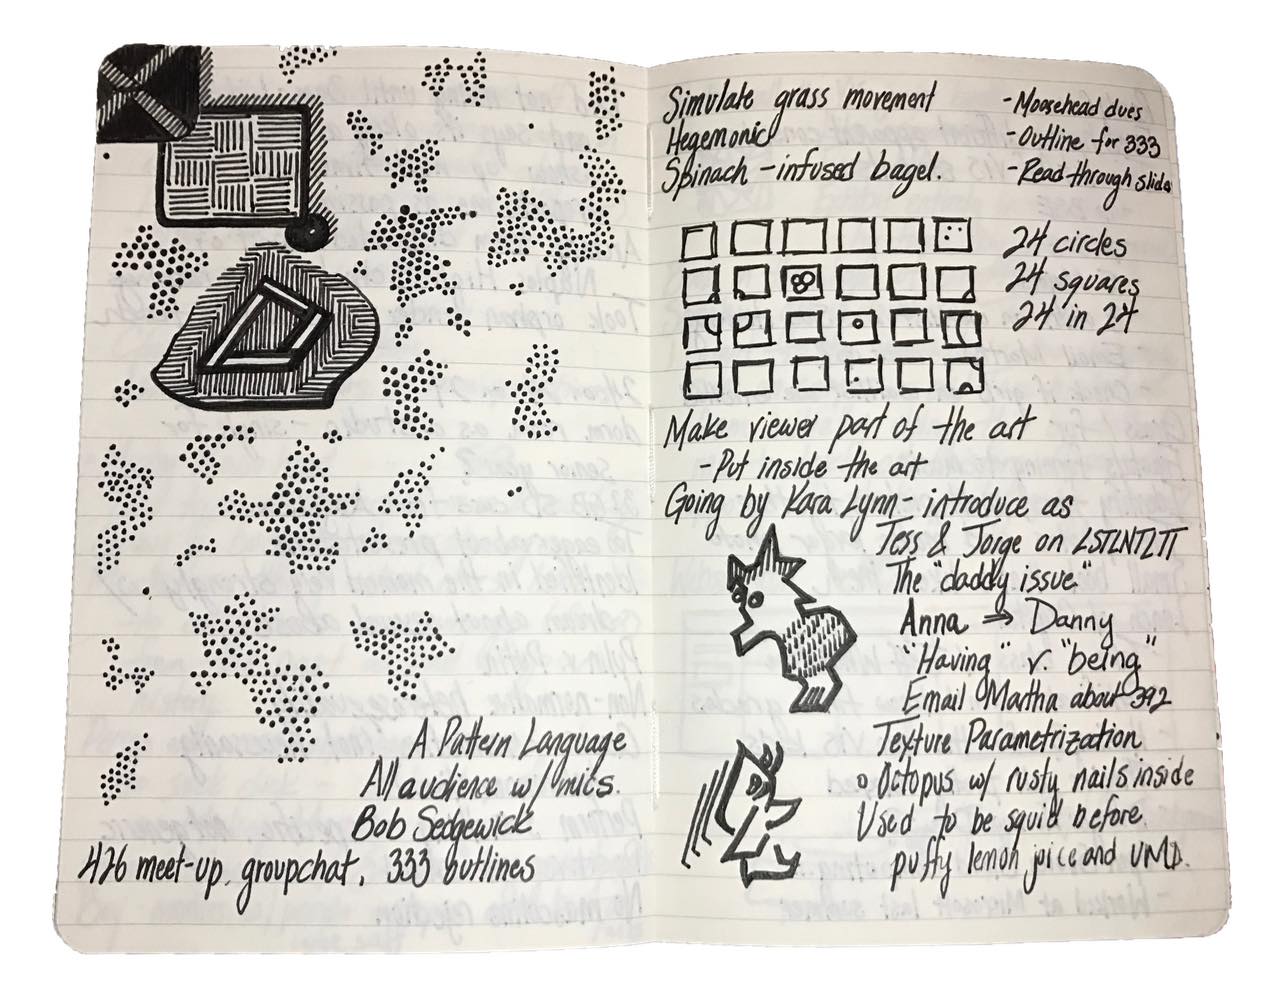 A Pattern Language
All audience w/ mics.
Bob Sedgewick
426 meet-up, groupchat, 333 outlines
Simulate grass movement
Hegemonic
Spinach-infused bagel.
-Moosehead dues
-Outline for 333
-Read through slides
24 circles
24 squares
24 in 24
Make viewer part of the art
-Put inside the art
Going by Kara Lynn- introduce as
Tess & Jorge on
The "daddy issue"
Anna ⇒ Danny
"Having" v. "being"
Email Martha about 392
Texture Parametrization
o Octopus w/ rusty nails inside
Used to be squid before.
puffy lemon joice and UMD.